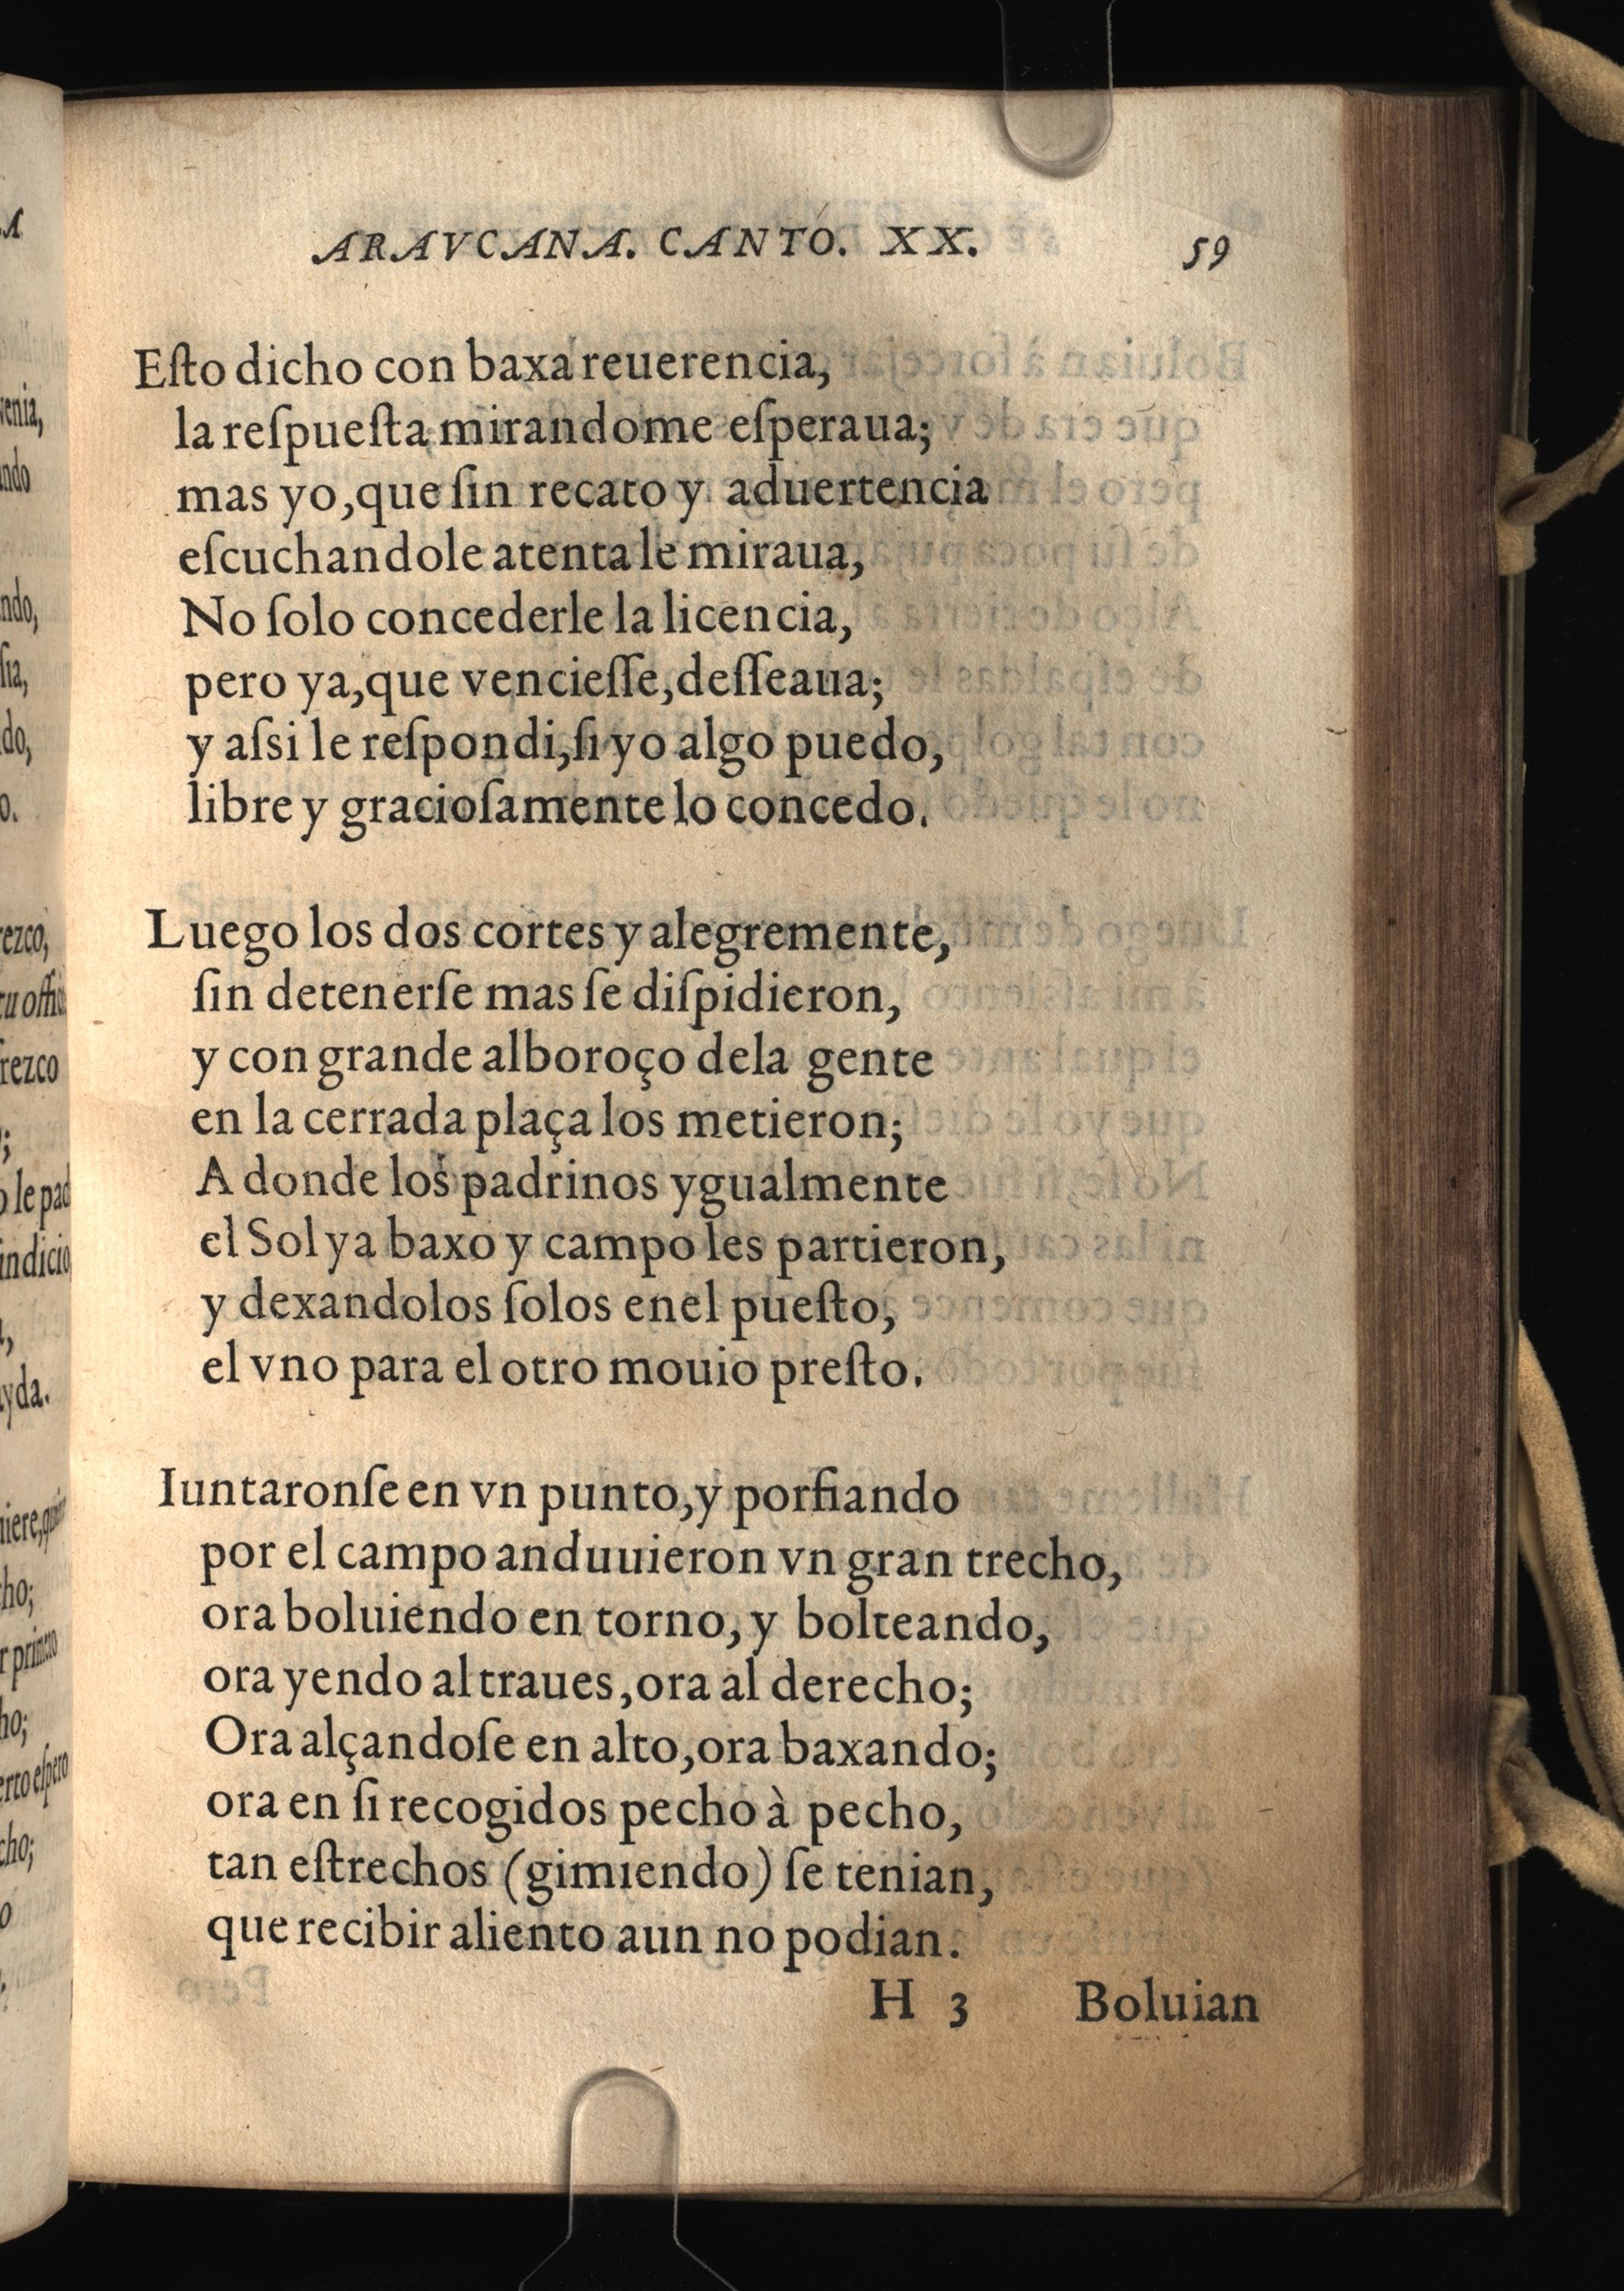 ARAVCANA. CANTO. XX. 59
Eſto dicho con baxa reuerencia,
la reſpueſta mirandome eſperaua;
mas yo, que ſin recato y aduertencia
eſcuchandole atenta le miraua,
No ſolo concederle la licencia,
pero ya, que vencieſſe, deſſeaua;
y aſsi le reſpondi, ſi yo algo puedo,
libre y gracioſamente lo concedo.
Luego los dos cortes y alegremente,
ſin detenerſe mas ſe diſpidieron,
y con grande alboroço dela gente
en la cerrada plaça los metieron;
A donde los padrinos ygualmente
el Sol ya baxo y campo les partieron,
y dexandolos ſolos enel pueſto,
el vno para el otro mouio preſto.
Iuntaronſe en vn punto, y porfiando
por el campo anduuieron vn gran trecho,
ora boluiendo en torno, y bolteando,
ora yendo al traues, ora al derecho;
Ora alçandoſe en alto, ora baxando;
ora en ſi recogidos pecho à pecho,
tan eſtrechos (gimiendo) ſe tenian,
que recibir aliento aun no podian.
H 3 Boluian